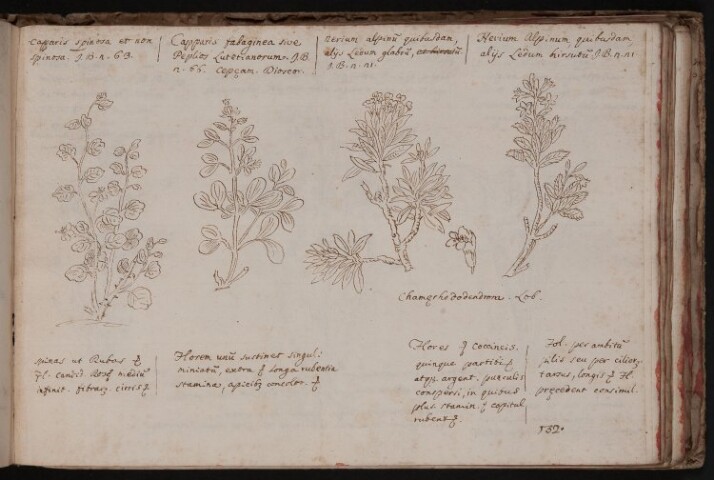 Capparis spinosa et non
spinosa. J.B. n. 63.
Capparis fabaginea sive
Peplios Lutetianorum. J.B.
n. 66. Cepęam. Dioscor.
Nerium alpinū quibusdam,
alijs Ledum glabrū,
J.B. n. 111.
Nerium Alpinum quibusdam
alijs Ledum hirsutū J.B. n. 111
Chamęrhododendron. Lob.
spinas ut Rubus
fl. candid.
infinit. fibras
Florem unū sustinet singul:
miniatū, extra longa rubentia
stamina, apicibꝫ concolor.
Flores coccineis.
quinque partiti
atqꝫ argent. punctulis
conspersi, in quibus
plus stamin. capitul
rubent
Fol. per ambitū
pilis seu per cilior.
tarsus, longis Fl
pręcedent consimil.
132.